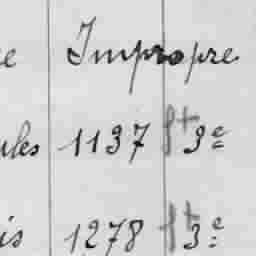 e Impropre
ules 1137 ft 3e
is 1278 ft 3e